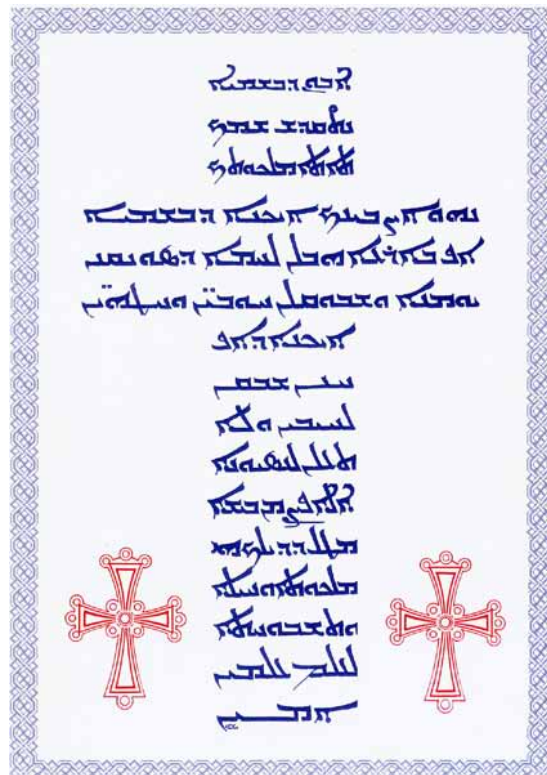 ܐܒܘܢ ܕܒܫܡܝܐ
ܢܬܩܕܫ ܫܡܟ
ܬܐܬܐ ܡܠܟܘܬܟ
ܢܗܘܐ ܨܒܝܢܟ ܐܝܟܢܐ ܕܒܫܡܝܐ
ܐܦ ܒܐܪܥܐ ܗܒ ܠܢ ܠܚܡܐ ܕܣܘܢܩܢܢ
ܝܘܡܢܐ ܘܫܒܘܩ ܠܢ ܚܘܒܝ̈ܢ ܘܚܛܗ̈ܝܢ
ܐܝܟܢܐ ܕܐܦ
ܚܢܢ ܫܒܩܢ
ܠܚܝܒܝܢ ܘܠܐ
ܬܥܠܢ ܠܢܣܝܘܢܐ
ܐܠܐ ܦܨܢ ܡܢ ܒܝܫܐ
ܡܛܠ ܕܕܝܠܟ ܗܝ
ܡܠܟܘܬܐ ܘܚܝܠܐ
ܘܬܫܒܘܚܬܐ
ܠܥܠܡ ܥܠܡܝܢ
ܐܡܝܢ